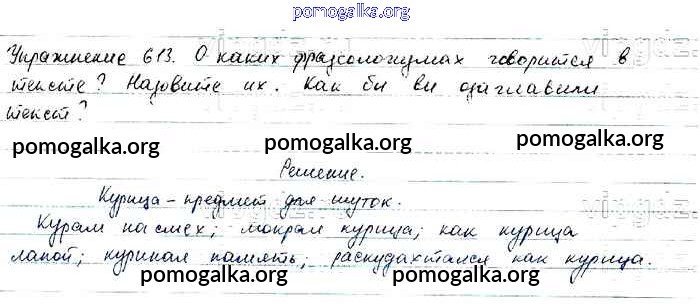 pomogalka.org
Упражнение 613. О каких фразеологизмах говорится в
тексте? Назовите их. Как бы вы озаглавили
текст?
pomogalka.org pomogalka.org pomogalka.org
Решение.
Курица – предмет для шуток.
Курам на смех; мокрая курица; как курица
лапой; куриная память; раскудахтался как курица.
pomogalka.org pomogalka.org pomogalka.org